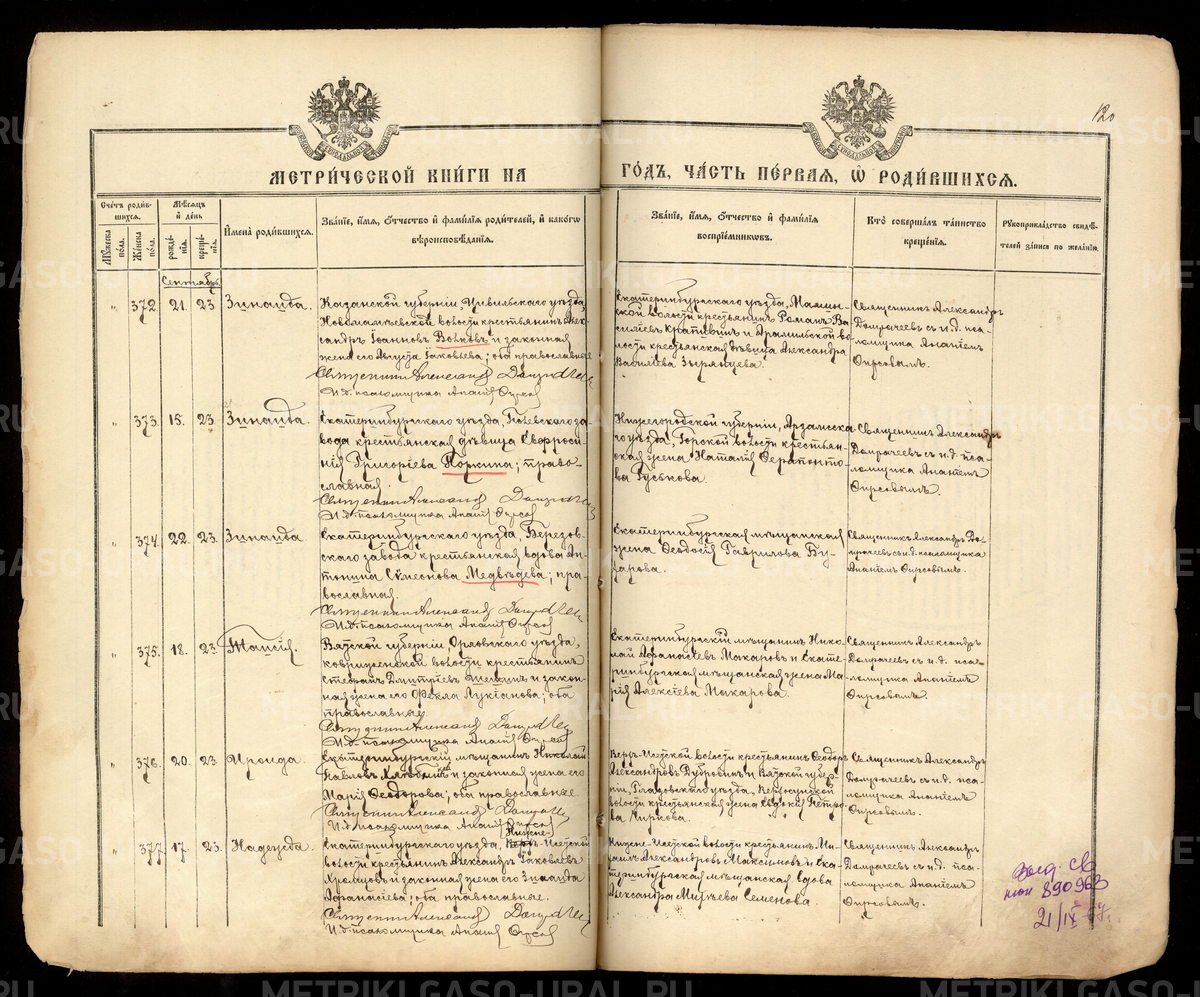 120
МЕТРИ́ЧЕСКОЙ КНИ́ГИ НА ГО́ДЪ, ЧА́СТЬ ПЕ́РВАЯ, Ѡ РОДИ́ВШИХСЯ.
Сче́тъ роди́в-
шихся.
Му́жеска по́ла.
Же́нска по́ла.
Мѣ́сяцъ
и́ де́нь
рожде́-
нія.
креще́-
нія.
И́мена̀ роди́вшихся.
Зва́ніе, и́мя, о́тчество и́ фами́лія роди́телей, и́ како́гѡ
вѣроисповѣ́данія.
Зва́ніе, и́мя, о́тчество и́ фами́лія
воспріе́мниковъ.
Кто̀ соверша́лъ та́инство
креще́нія.
Рукоприкла́дство свидѣ́-
телей за́писи по жела́нію.
Сентябрь
" 372 21. 23 Зинаида.
Казанской губерніи, Цивильскаго уѣзда,
крестьянинъ Алек-
сандръ Іоанновъ Волковъ и законная
жена его Августа Іаковлева; оба православные
Священникъ Александръ
И. д. псаломщика Ананій Фирсов
Екатеринбургскаго уѣзда, Мамин-
ской волости крестьянинъ Романъ Ва-
сильевъ и Арамильской во-
лости крестьянская дѣвица Александра
Василіева Зырянцева.
Священникъ Александръ
Домрачеевъ съ и. д. пса-
ломщика Ананіемъ
Фирсовымъ.
" 373. 15. 23. Зинаида.
Екатеринбургскаго уѣзда, Полевскаго за-
вода крестьянская дѣвица Евфроси-
нія Григоріева Поркина; право-
славная.
Священникъ Александръ
И. д. псаломщика Ананій Фирсов
Нижегородской губерніи, Арзамска-
го уѣзда, Горской волости крестьян-
ская жена Наталія Ферапонто-
ва Гуськова.
Священникъ Александръ
Домрачеевъ съ и. д. пса-
ломщика Ананіемъ
Фирсовымъ.
" 374. 22. 23. Зинаида
Екатеринбургскаго уѣзда, Березов-
скаго завода крестьянская вдова Ан-
тонина Сѵмеонова Медвѣдева; пра-
вославная.
Священникъ Александръ
И. д. псаломщика Ананій Фирсов
Екатеринбургская мѣщанская
жена Феодосія Гаврилова Бу-
харова.
Священникъ Александръ До-
мрачеевъ съ и. д. псаломщика
Ананіемъ Фирсовымъ.
" 375. 18. 23. Таисія.
Вятской губерніи Орловскаго уѣзда,
волости крестьянинъ
Стефанъ Димитріевъ и закон-
ная жена его Ѳекла Лукіанова; оба
православные.
Священникъ Александръ
И. д. псаломщика Ананій Фирсов
Екатеринбургскій мѣщанинъ Нико-
лай Афанасіевъ Макаровъ и Екате-
ринбургская мѣщанская жена Ма-
рія Алексіева Макарова.
Священникъ Александръ
Домрачеевъ съ и. д. пса-
ломщика Ананіемъ
Фирсовымъ.
" 376. 20. 23. Ираида.
Екатеринбургскій мѣщанинъ Николай
Павловъ и законная жена его
Марія Ѳеодорова; оба православные.
Священникъ Александръ
И. д. псаломщика Ананій Фирсов
Верхъ-Исетской волости крестьянинъ Ѳеодоръ
Александровъ Дубровинъ и Вятской губер-
ніи, Глазовскаго уѣзда,
волости крестьянская жена Евдокія Петро-
ва Чиркова.
Священникъ Александръ
Домрачеевъ съ и. д. пса-
ломщика Ананіемъ
Фирсовымъ.
" 377 17. 23. Надежда.
Нижне-
Екатеринбургскаго уѣзда, Верхъ-Исетской
волости крестьянинъ Александръ Іаковлевъ
Храмцовъ и законная жена его Зинаида
Афанасіева; оба православные.
Священникъ Александръ
И. д. псаломщика Ананій Фирсов
Нижне-Исетской волости крестьянинъ Ми-
хаилъ Александровъ Максимовъ и Ека-
теринбургская мѣщанская вдова
Александра Матѳеева Семенова.
Священникъ Александръ
Домрачеевъ съ и. д. пса-
ломщика Ананіемъ
Фирсовымъ.
890963
21/IX
METRIKI.GASO-URAL.RU